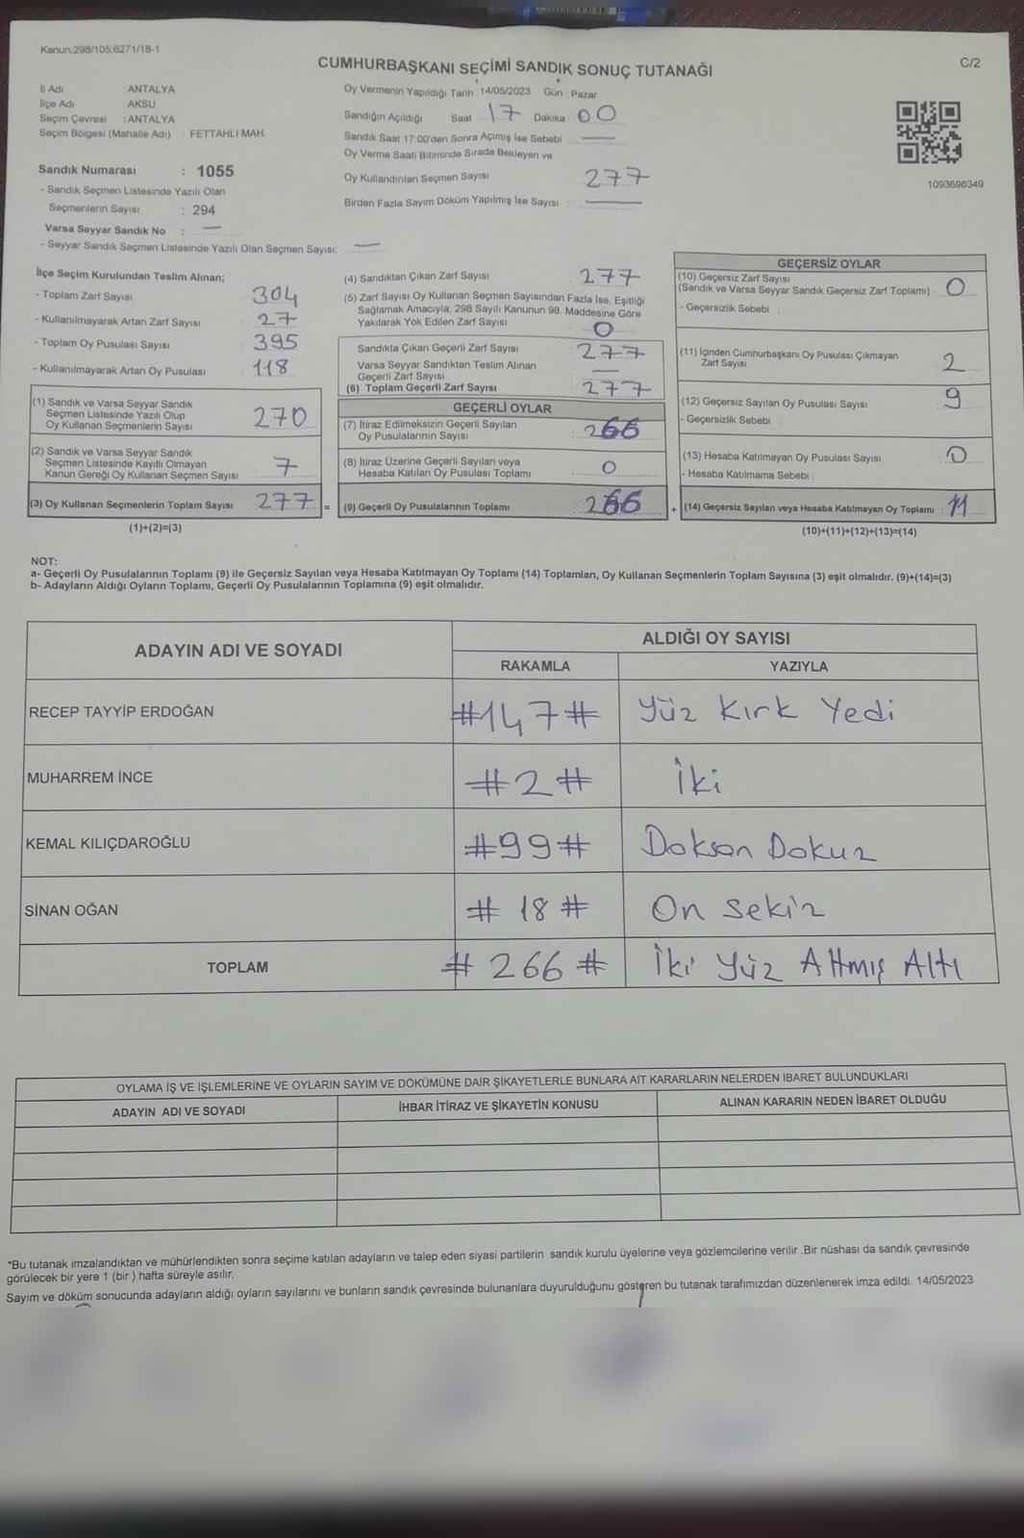 Kanun:298/105:6271/18-1
C/2
CUMHURBAŞKANI SEÇİMİ SANDIK SONUÇ TUTANAĞI
İl Adı : ANTALYA
İlçe Adı : AKSU
Seçim Çevresi : ANTALYA
Seçim Bölgesi (Mahalle Adı) : FETTAHLI MAH.
Oy Vermenin Yapıldığı Tarih : 14/05/2023 Gün : Pazar
Sandığın Açıldığı Saat 17 Dakika 00
Sandık Saat 17:00'den Sonra Açılmış İse Sebebi —
Oy Verme Saati Bitiminde Sırada Bekleyen ve
Oy Kullandırılan Seçmen Sayısı 277
Birden Fazla Sayım Döküm Yapılmış İse Sayısı : —
1093696349
Sandık Numarası : 1055
- Sandık Seçmen Listesinde Yazılı Olan
Seçmenlerin Sayısı : 294
Varsa Seyyar Sandık No : —
- Seyyar Sandık Seçmen Listesinde Yazılı Olan Seçmen Sayısı: —
İlçe Seçim Kurulundan Teslim Alınan;
- Toplam Zarf Sayısı 304
- Kullanılmayarak Artan Zarf Sayısı 27
- Toplam Oy Pusulası Sayısı 395
- Kullanılmayarak Artan Oy Pusulası 118
(1) Sandık ve Varsa Seyyar Sandık
Seçmen Listesinde Yazılı Olup
Oy Kullanan Seçmenlerin Sayısı 270
(2) Sandık ve Varsa Seyyar Sandık
Seçmen Listesinde Kayıtlı Olmayan
Kanun Gereği Oy Kullanan Seçmen Sayısı 7
(3) Oy Kullanan Seçmenlerin Toplam Sayısı 277 =
(1)+(2)=(3)
(4) Sandıktan Çıkan Zarf Sayısı 277
(5) Zarf Sayısı Oy Kullanan Seçmen Sayısından Fazla İse, Eşitliği
Sağlamak Amacıyla, 298 Sayılı Kanunun 98. Maddesine Göre
Yakılarak Yok Edilen Zarf Sayısı 0
Sandıkta Çıkan Geçerli Zarf Sayısı 277
Varsa Seyyar Sandıktan Teslim Alınan
Geçerli Zarf Sayısı —
(6) Toplam Geçerli Zarf Sayısı 277
GEÇERLİ OYLAR
(7) İtiraz Edilmeksizin Geçerli Sayılan
Oy Pusulalarının Sayısı 266
(8) İtiraz Üzerine Geçerli Sayılan veya
Hesaba Katılan Oy Pusulası Toplamı 0
(9) Geçerli Oy Pusulalarının Toplamı 266 +
GEÇERSİZ OYLAR
(10) Geçersiz Zarf Sayısı
(Sandık ve Varsa Seyyar Sandık Geçersiz Zarf Toplamı) 0
- Geçersizlik Sebebi :
(11) İçinden Cumhurbaşkanı Oy Pusulası Çıkmayan
Zarf Sayısı 2
(12) Geçersiz Sayılan Oy Pusulası Sayısı 9
- Geçersizlik Sebebi
(13) Hesaba Katılmayan Oy Pusulası Sayısı 0
- Hesaba Katılmama Sebebi
(14) Geçersiz Sayılan veya Hesaba Katılmayan Oy Toplamı 11
(10)+(11)+(12)+(13)=(14)
NOT:
a- Geçerli Oy Pusulalarının Toplamı (9) ile Geçersiz Sayılan veya Hesaba Katılmayan Oy Toplamı (14) Toplamları, Oy Kullanan Seçmenlerin Toplam Sayısına (3) eşit olmalıdır. (9)+(14)=(3)
b- Adayların Aldığı Oyların Toplamı, Geçerli Oy Pusulalarının Toplamına (9) eşit olmalıdır.
ADAYIN ADI VE SOYADI
ALDIĞI OY SAYISI
RAKAMLA YAZIYLA
RECEP TAYYİP ERDOĞAN #147# Yüz Kırk Yedi
MUHARREM İNCE #2# İki
KEMAL KILIÇDAROĞLU #99# Doksan Dokuz
SİNAN OĞAN #18# On Sekiz
TOPLAM #266# İki Yüz Altmış Altı
OYLAMA İŞ VE İŞLEMLERİNE VE OYLARIN SAYIM VE DÖKÜMÜNE DAİR ŞİKAYETLERLE BUNLARA AİT KARARLARIN NELERDEN İBARET BULUNDUKLARI
ADAYIN ADI VE SOYADI İHBAR İTİRAZ VE ŞİKAYETİN KONUSU ALINAN KARARIN NEDEN İBARET OLDUĞU
*Bu tutanak imzalandıktan ve mühürlendikten sonra seçime katılan adayların ve talep eden siyasi partilerin sandık kurulu üyelerine veya gözlemcilerine verilir .Bir nüshası da sandık çevresinde
görülecek bir yere 1 (bir ) hafta süreyle asılır.
Sayım ve döküm sonucunda adayların aldığı oyların sayılarını ve bunların sandık çevresinde bulunanlara duyurulduğunu gösteren bu tutanak tarafımızdan düzenlenerek imza edildi. 14/05/2023